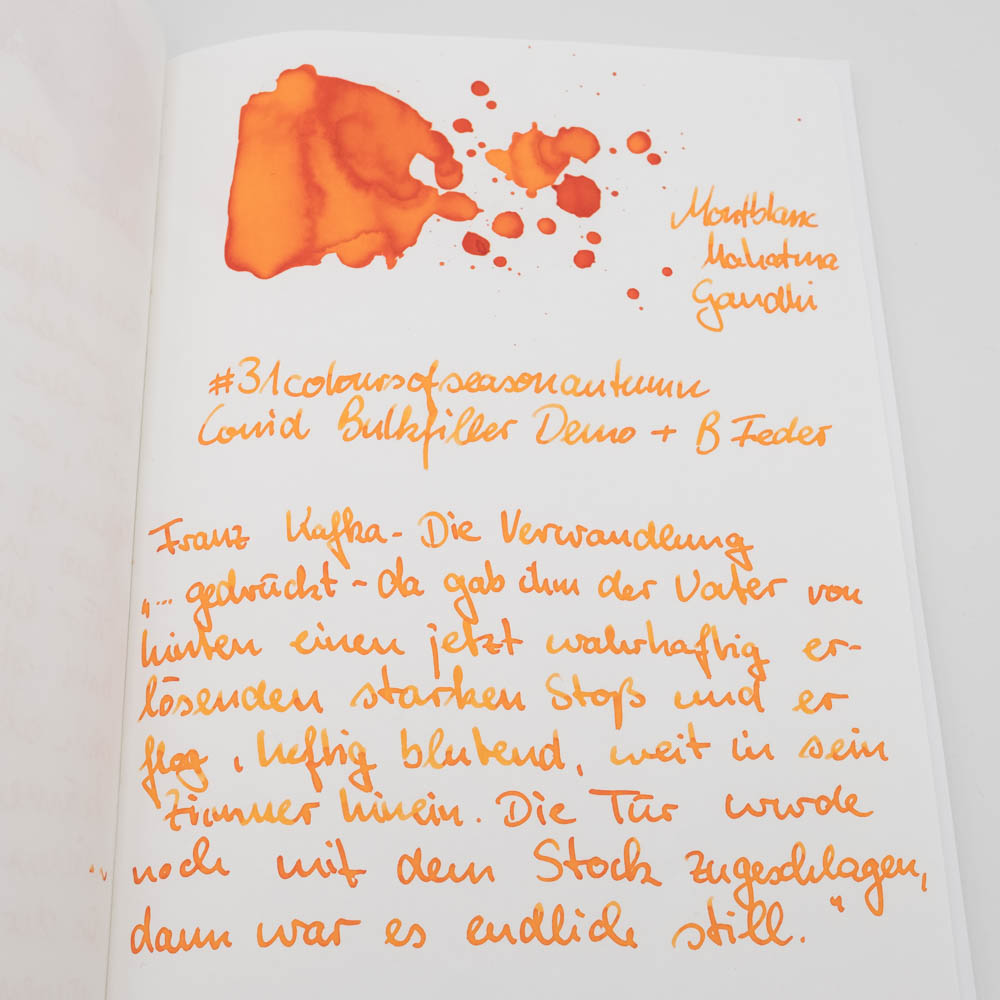 Montblanc
Mahatma
Gandhi
#31coloursofseasonautumn
Conid Bulkfiller Demo + B Feder
Franz Kafka - Die Verwandlung
"... gedrückt - da gab ihm der Vater von
hinten einen jetzt wahrhaftig er-
lösenden starken Stoß und er
flog, heftig blutend, weit in sein
Zimmer hinein. Die Tür wurde
noch mit dem Stock zugeschlagen,
dann war es endlich still."